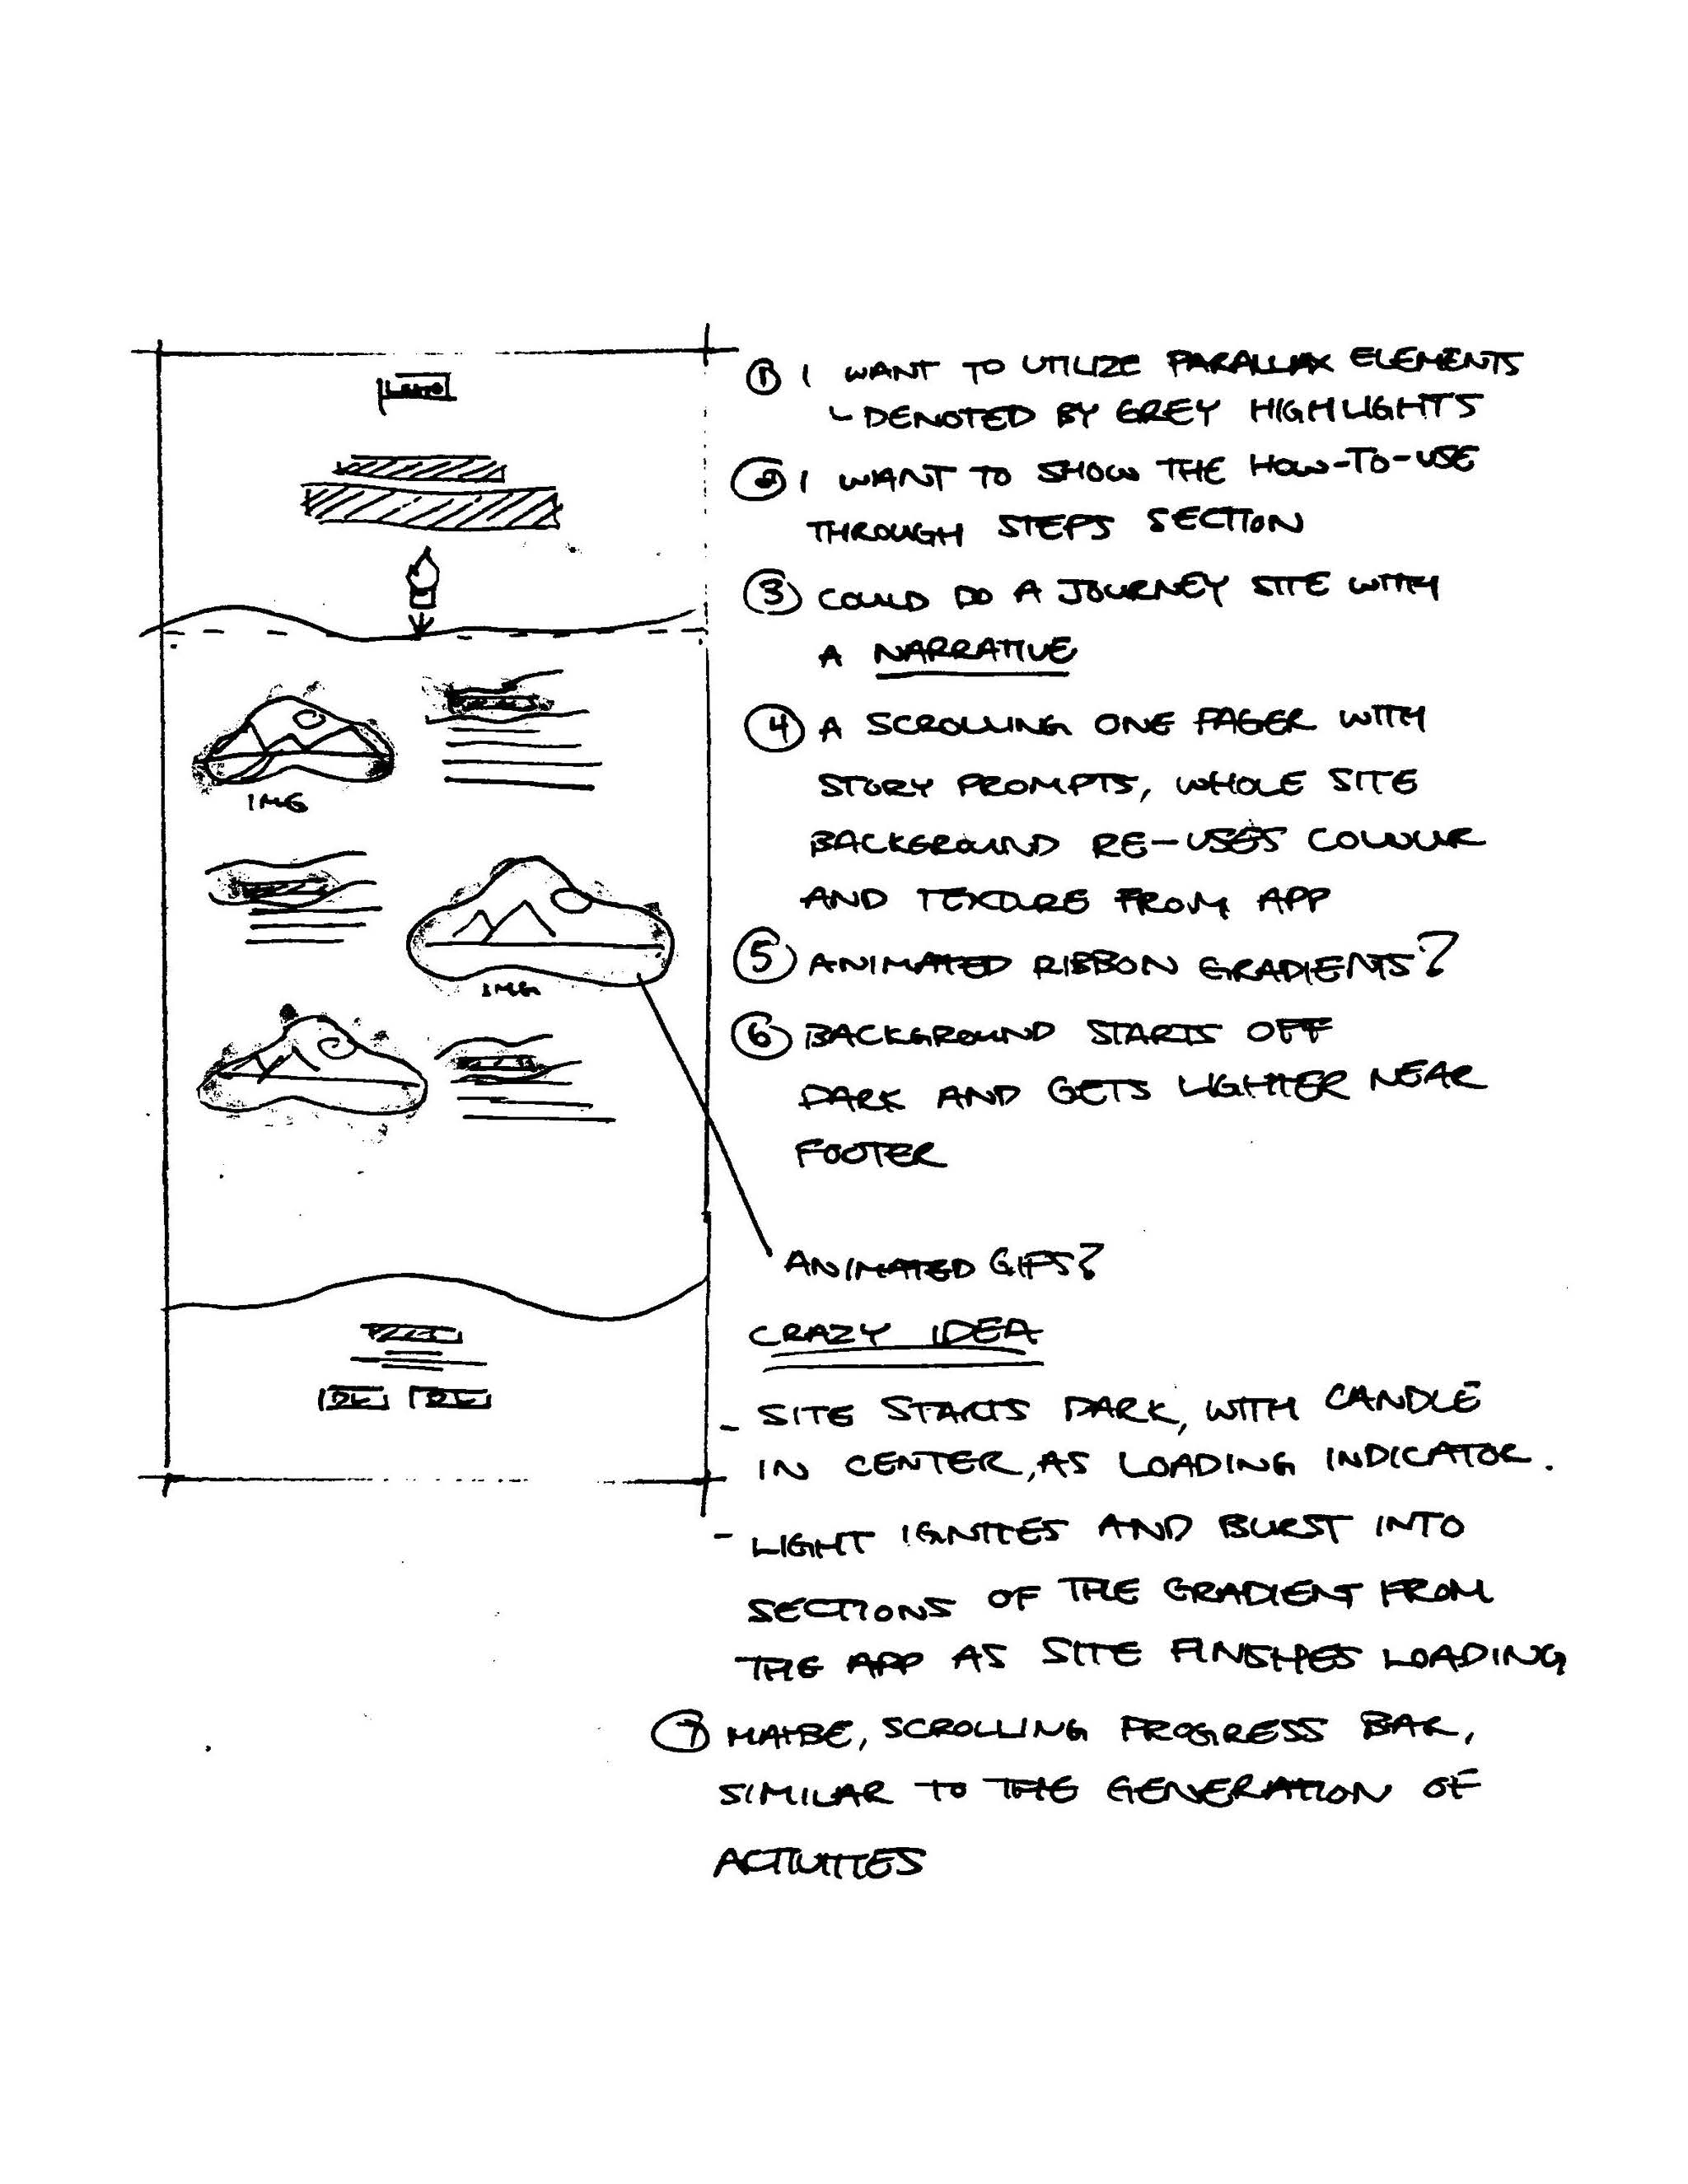 LOGO
IMG
IMG
DL DL
① I WANT TO UTILIZE PARALLAX ELEMENTS
- DENOTED BY GREY HIGHLIGHTS
② I WANT TO SHOW THE HOW-TO-USE
THROUGH STEPS SECTION
③ COULD DO A JOURNEY SITE WITH
A NARRATIVE
④ A SCROLLING ONE PAGER WITH
STORY PROMPTS, WHOLE SITE
BACKGROUND RE-USES COLOUR
AND TEXTURE FROM APP
⑤ ANIMATED RIBBON GRADIENTS?
⑥ BACKGROUND STARTS OFF
DARK AND GETS LIGHTER NEAR
FOOTER
ANIMATED GIFS?
CRAZY IDEA
- SITE STARTS DARK, WITH CANDLE
IN CENTER, AS LOADING INDICATOR.
- LIGHT IGNITES AND BURST INTO
SECTIONS OF THE GRADIENT FROM
THE APP AS SITE FINISHES LOADING
⑦ MAYBE, SCROLLING PROGRESS BAR,
SIMILAR TO THE GENERATION OF
ACTIVITIES